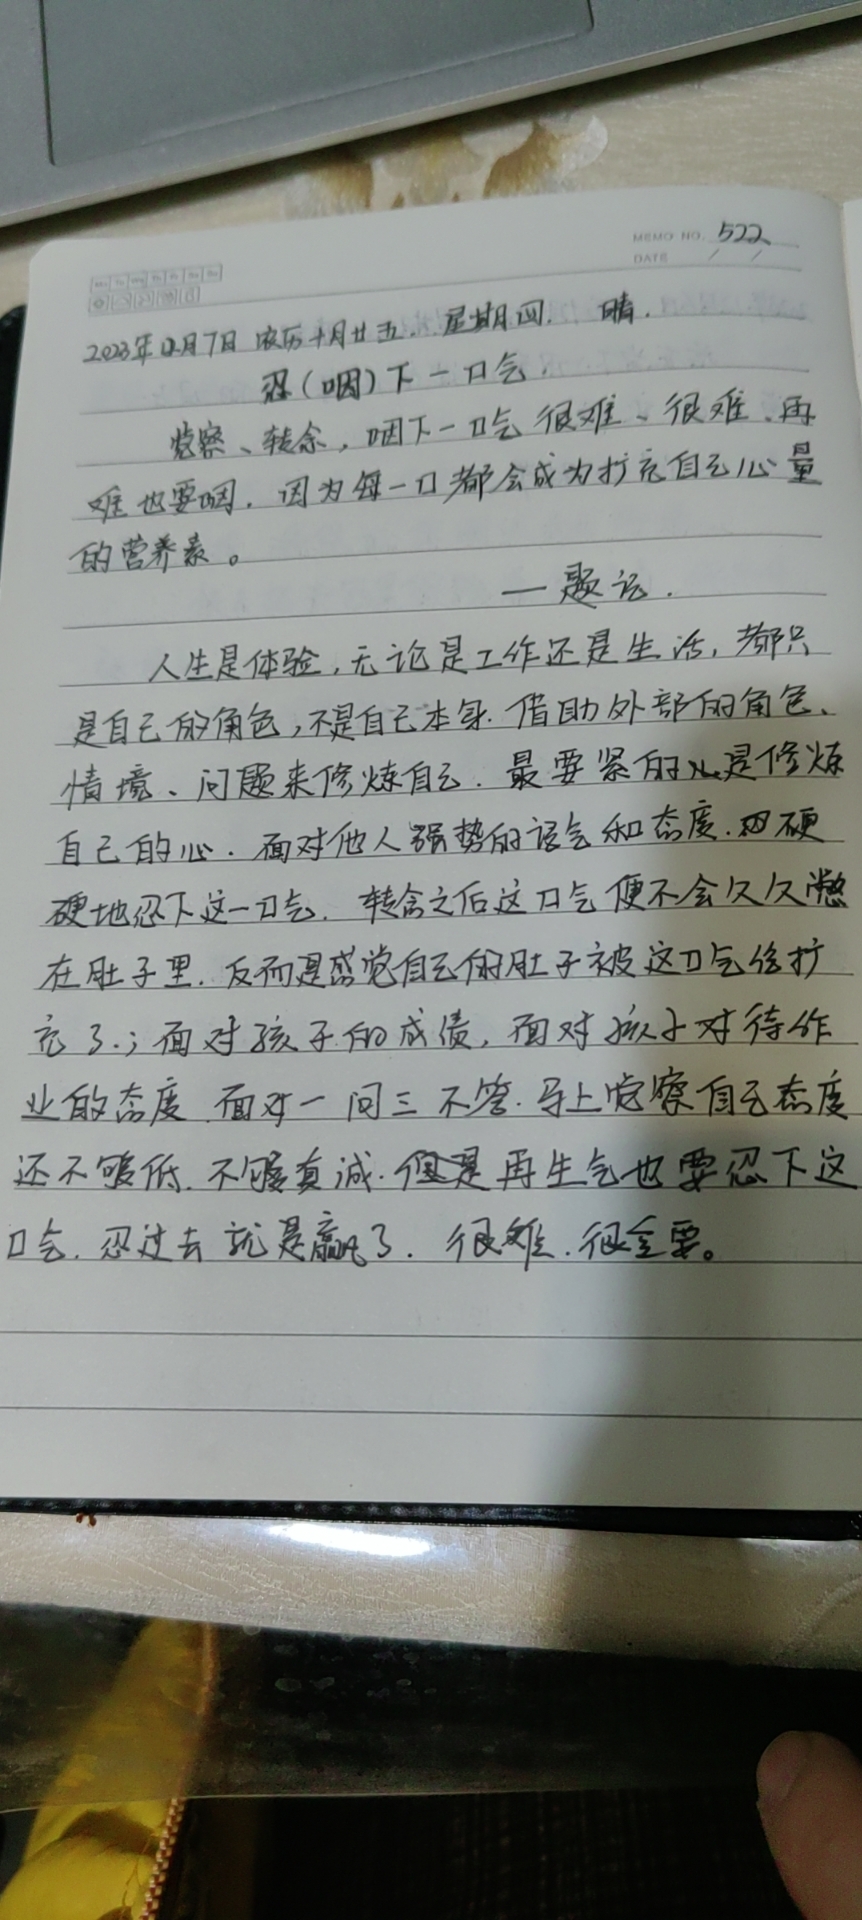 MEMO NO. 522
DATE / /
2023年12月7日 农历十月廿五. 星期四. 晴.
忍(咽)下一口气
觉察、转念, 咽下一口气很难、很难、再
难也要咽. 因为每一口都会成为扩充自己心量
的营养素。
—题记.
人生是体验, 无论是工作还是生活, 都只
是自己的角色, 不是自己本身. 借助外部的角色、
情境、问题来修炼自己. 最要紧的是修炼
自己的心. 面对他人强势的语气和态度. 硬
硬地忍下这一口气. 转念之后这口气便不会久久憋
在肚子里. 反而是感觉自己的肚子被这口气给扩
充了.; 面对孩子的成绩, 面对孩子对待作
业的态度. 面对一问三不答. 马上觉察自己态度
还不够低. 不够真诚. 但是再生气也要忍下这
口气. 忍过去就是赢了. 很难. 很重要。